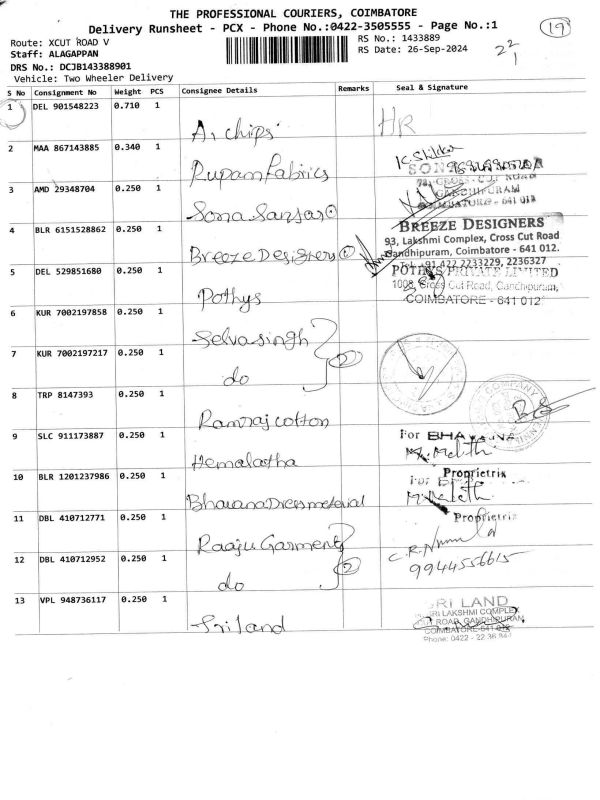 THE PROFESSIONAL COURIERS, COIMBATORE
Delivery Runsheet - PCX - Phone No.:0422-3505555 - Page No.:1
19
Route: XCUT ROAD V
RS No.: 1433889
Staff: ALAGAPPAN
RS Date: 26-Sep-2024
22
1
DRS No.: DCJB143388901
Vehicle: Two Wheeler Delivery
S No Consignment No Weight PCS Consignee Details Remarks Seal & Signature
1 DEL 901548223 0.710 1 A1 chips HR
2 MAA 867143885 0.340 1 Rupam Fabrics
3 AMD 29348704 0.250 1 Sona Sansar
GANDHIPURAM
COIMBATORE - 641 012
4 BLR 6151528862 0.250 1 Breeze Designers
BREEZE DESIGNERS
93, Lakshmi Complex, Cross Cut Road
Gandhipuram, Coimbatore - 641 012.
Tel: +91 422 2233229, 2236327
5 DEL 529851680 0.250 1 Pothys
POTHYS PRIVATE LIMITED
1008, Cross Cut Road, Gandhipuram,
COIMBATORE - 641 012
6 KUR 7002197858 0.250 1 Selvasingh
2
7 KUR 7002197217 0.250 1 do
8 TRP 8147393 0.250 1 Ramraj cotton
9 SLC 911173887 0.250 1 Hemalatha
For BHAVANA
Proprietrix
10 BLR 1201237986 0.250 1 Bhavana Dress material
For
Proprietrix
11 DBL 410712771 0.250 1 Raaju Garments
2
12 DBL 410712952 0.250 1 do
9944556615
13 VPL 948736117 0.250 1 Sri land
SRI LAND
SRI LAKSHMI COMPLEX
ROAD, GANDHIPURAM
COIMBATORE-641 012
Phone: 0422 -